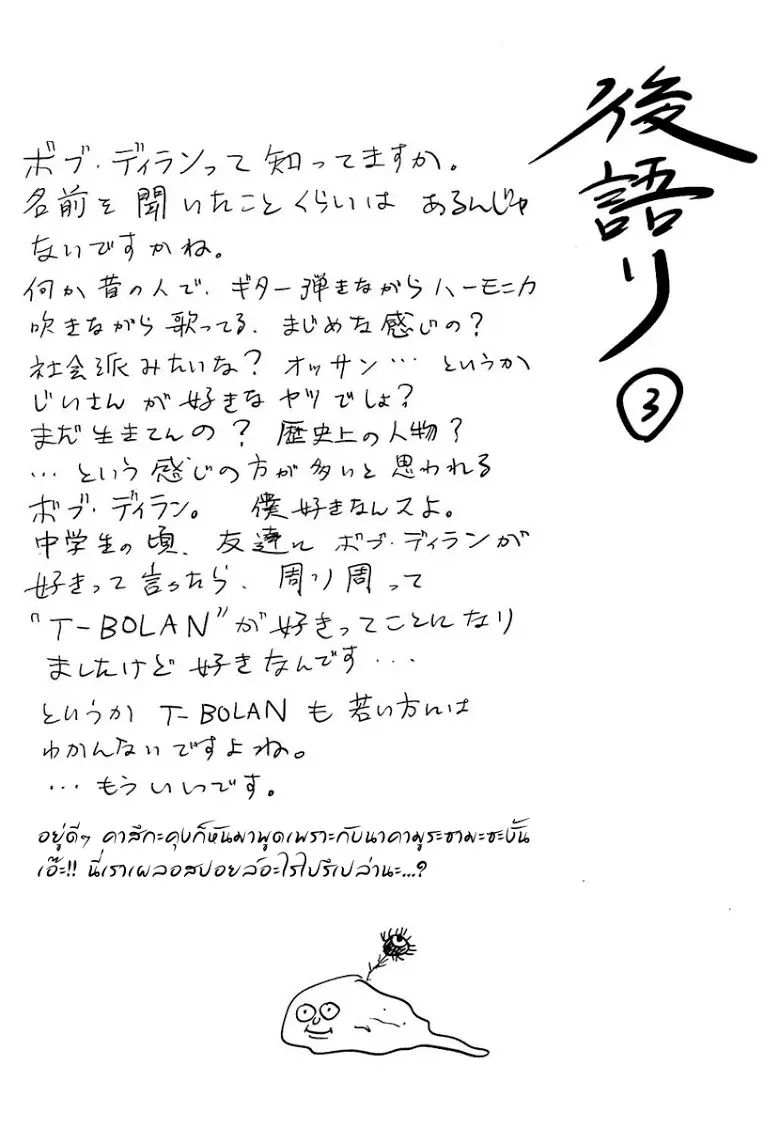 後語り
③
ボブ・ディランって知ってますか。
名前を聞いたことくらいは あるんじゃ
ないですかね。
何か昔の人で、ギター弾きながらハーモニカ
吹きながら歌ってる、まじめな感じの？
社会派みたいな？ オッサン… というか
じいさんが好きなヤツでしょ？
まだ生きてんの？ 歴史上の人物？
…という感じの方が多いと思われる
ボブ・ディラン。 僕好きなんスよ。
中学生の頃、友達に ボブ・ディランが
好きって言ったら、周り周って
"T-BOLAN"が好きってことになり
ましたけど好きなんです…
というか T-BOLANも若い方には
わかんないですよね。
…もういいです。
อยู่ดีๆ คาสึกะคุงก็หันมาพูดเพราะกับนาคามูระซามะซะงั้น
เอ๊ะ!! นี่เราเผลอสปอยล์อะไรไปรึเปล่านะ...?